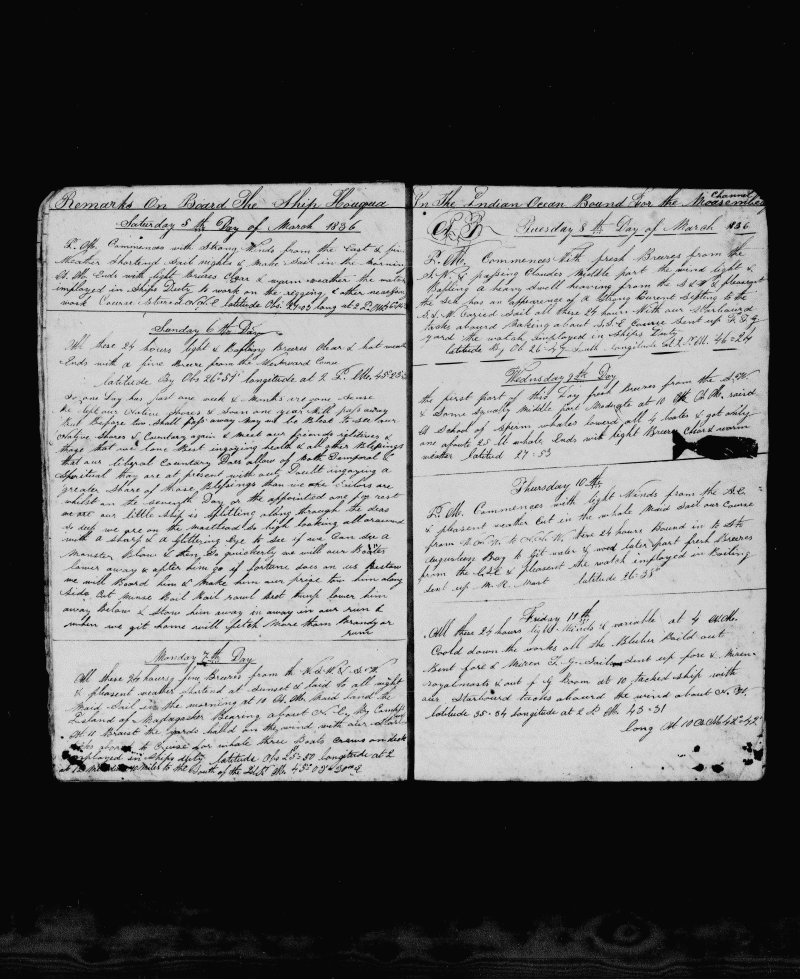 Remarks On Board The Ship Houqua
Saturday 5 th Day of March 1836
P. M. Commences with Strong Winds from the East & fin
Weather Shortend Sail nights & Make Sail in the Morning
A. M. Ends with light Briezes Clere & warm weather the
imployed in Ships Duty to work on the rigging & other
work Course latitude Obs. long at 2 P. M.
Sunday 6 th Day
All these 24 hours light & Baffling Briezes Clear & hot weath
Ends with a fine Breeze from the Westward
latitude By Obs 26°51' longetude at 2 P. M.
So one Day has past one week & Munths are gone Sence
We left our Native Shores & Soon one year Will pass away
But Before two Shall pass away May we be Blest to See our
Native Shores & Cuntary again & Meet our friends relitives &
those that we love Best injoying health & all other Blessings
that our liberal Cuntary Does allow of Both Temporal &
Spiritual they are at present with out Doubt ingoying a
greater Share of those Blessings than we are Sailors are
whilst on the Seventh Day or the appointed one for rest
we are our little Ship is Splitting along through the Seas
So deep we are on the masthead So high looking all around
with a Sharp & a glittering Eye to See if we Can See a
Monster Blow & then So quickerly we will our Boates
lower away & after him go if fortune does on us Bestow
we will Board him & Make him our prize tow him along
Side Cut Boil lower him
away Below & Stow him away in away in our run &
when we git home will fetch More than Brandy or
rum
Monday 7 th Day
All these 24 hours fine Breezes from the
& pleasent weather at Sunset & laid to all night
Maid Sail in the morning at 10 A. M. Maid Land the
Island of Madagaster Bearing about By Compass
At 10 Braist the yards on the wind with our Starb
to Cruise for whale three Boats Crews on deck
employed in Ships duty latitude Obs 25=50 longitude at 2
South of the
In The Indian Ocean Bound For the Mosembeq
Channel
Tuesday 8 th Day of March 1836
P. M. Commences With fresh Breezes from the
passing Cloudes Middle part the wind light &
Baffling A heavy Swell heaving from the & pleasent
the Sea has an appearence of A Strong Curent Setting to the
Caried Sail all these 24 hours With our Starbourd
tacks abourd Making about S.S.E Course Sent up
yard the watch Imployed in Ships Duty
latitude By Ob 26=47 South longitude at 2 P. M. 46=24
Wednesday 9th Day
the first part of this Day fresh Breezes from the
& Some Squaly Middle part Moderate at 10 A. M. raisd
A School of Sperm whales lowered all 4 boates & got only
one aboute 25 bbl whale. Ends with light Breezes Clear & warm
weather latitud 27=53
Thursday 10 th
P. M. Commences with light Winds from the
& pleasent weather Cut in the whale Maid Sail our Course
from these 24 hours Bound in to St
Augusteen Bay to git water & wood later part fresh Breezes
from the & pleasent the watch imployed in Boiling
Sent up M. R. Mast latitude 26=35
Friday 11 th
All these 24 hours light Winds & variable at 4 A. M.
Coold down the works all the Blubber Boild out
Bent fore & Mizen T. G. Sailes Sent up fore & Mizen
royalmasts & out Boom at 10 tacked Ship with
our Starbourd tacks abourd the wind about
latitude 25=34 longitude at 2 P. M. 43=31
long At 10 A. M. 42°=42'